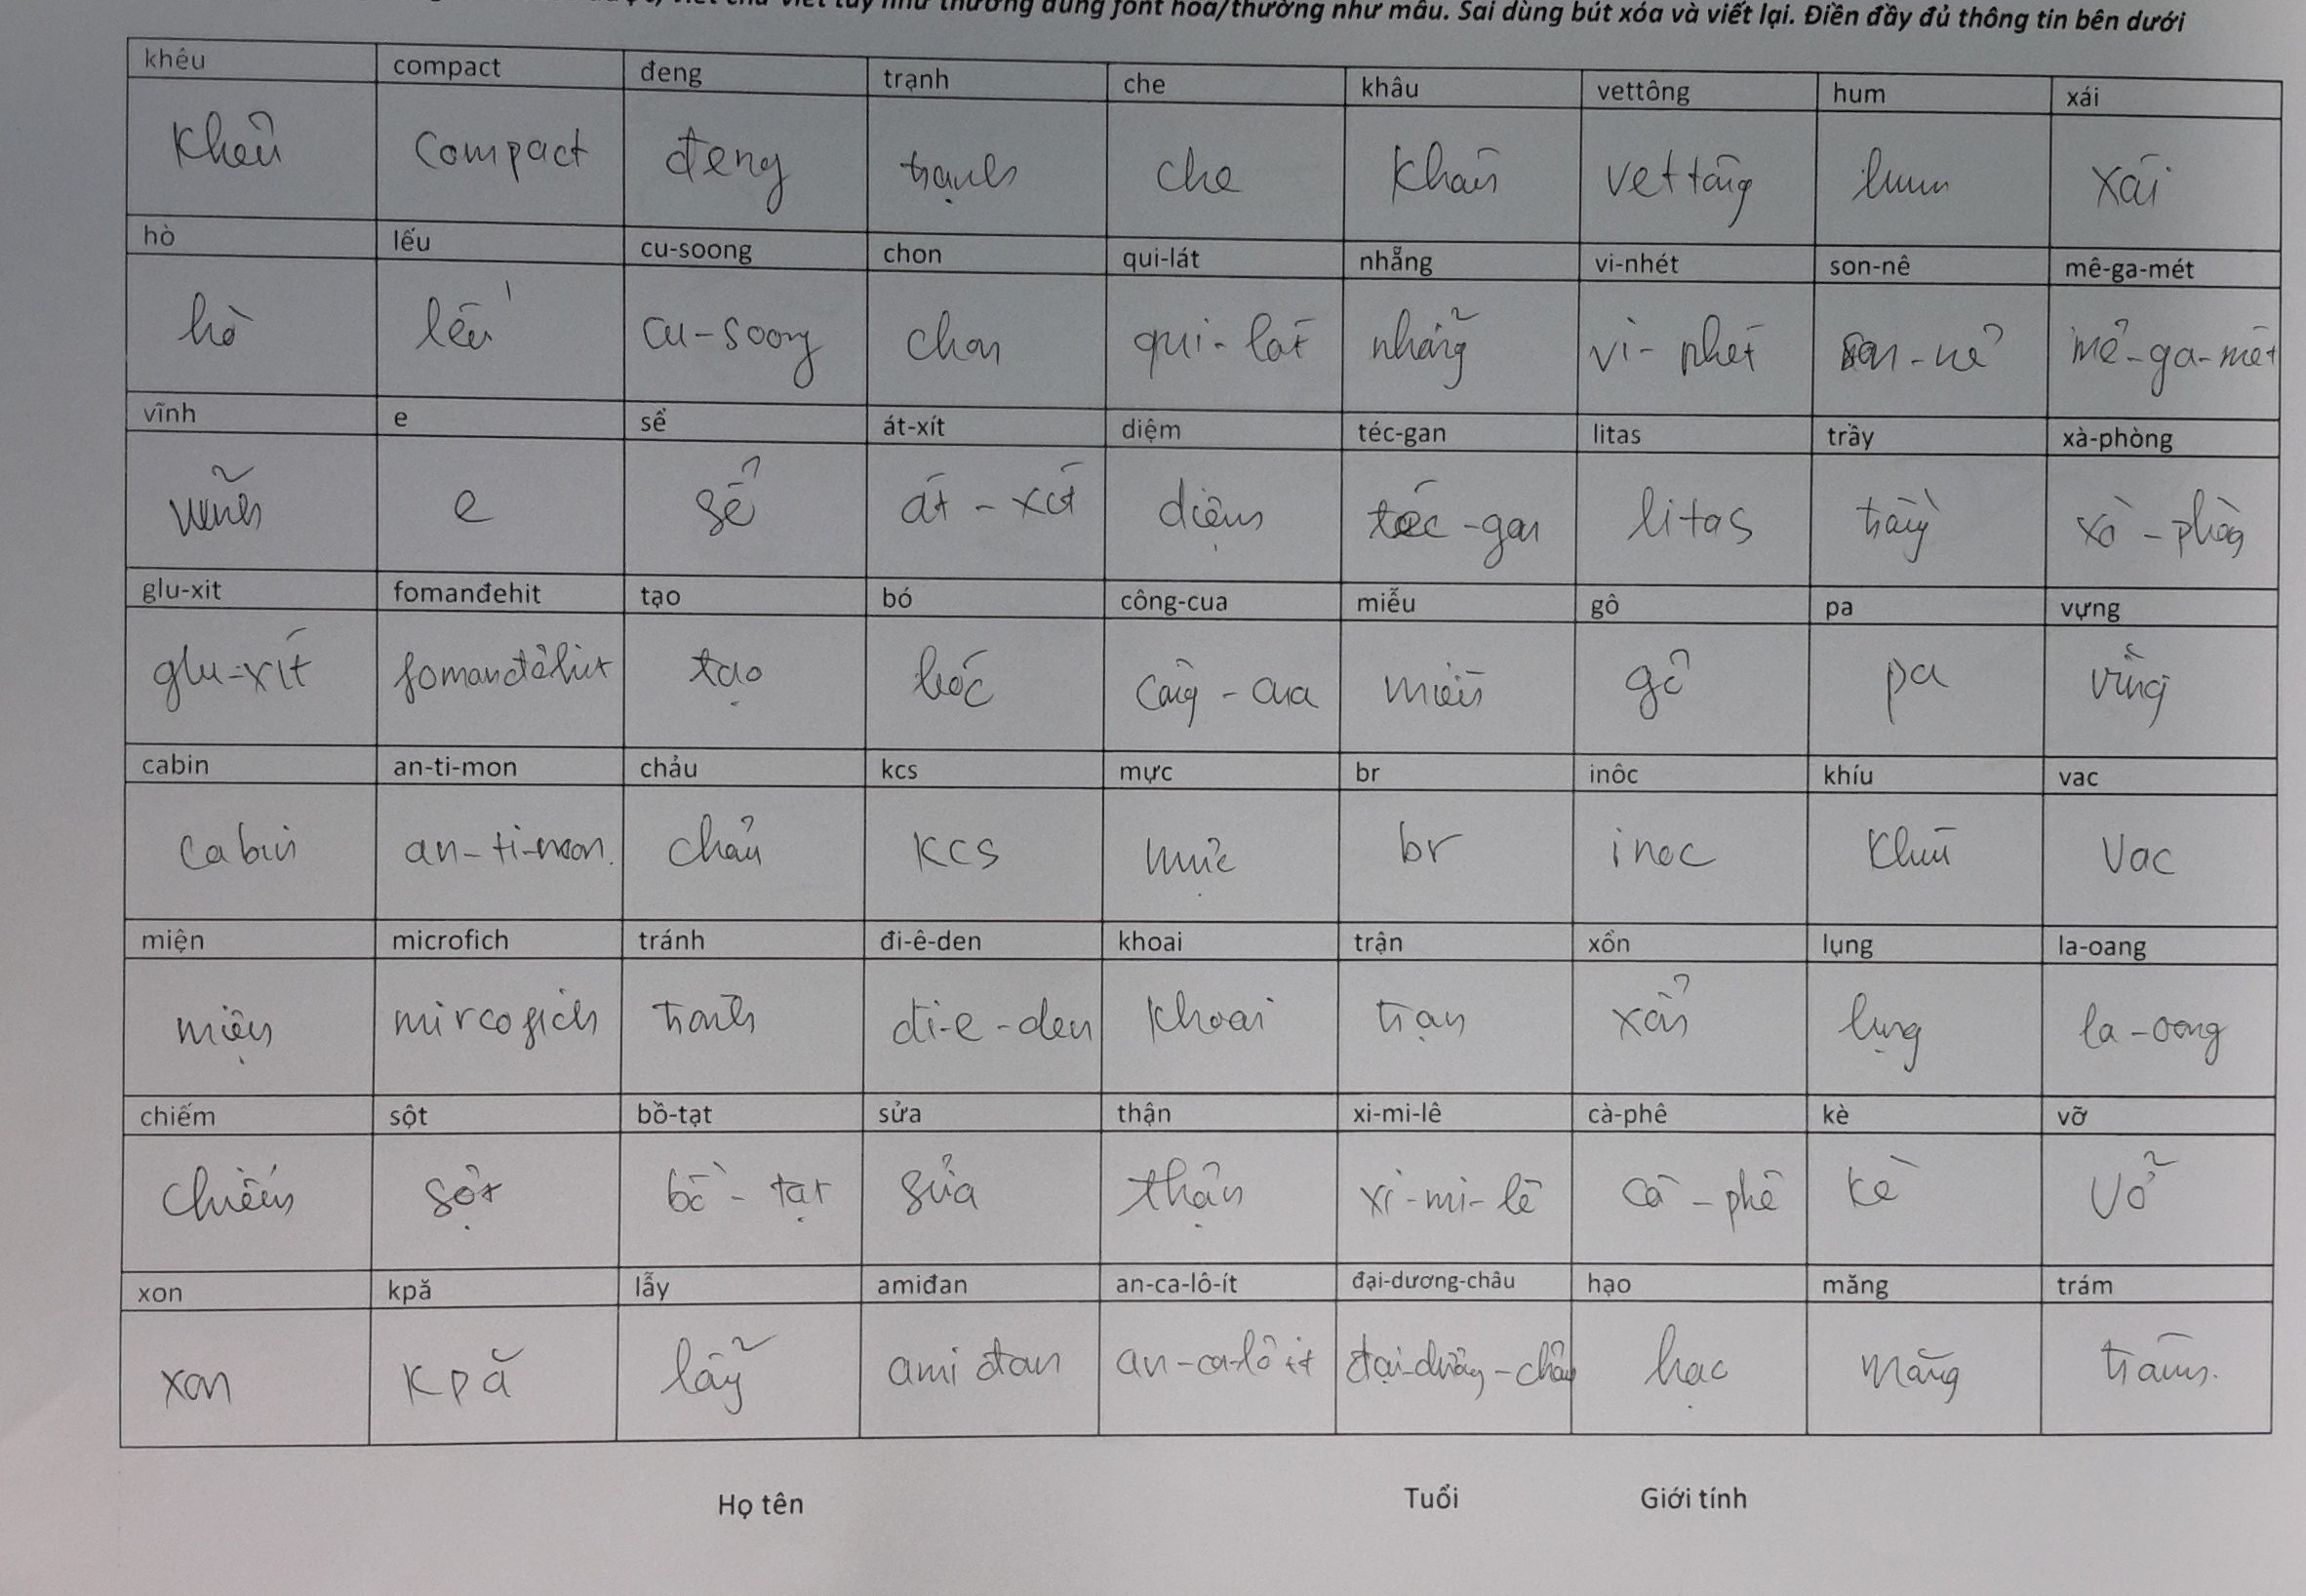 như thường dùng font hoa/thường như mẫu. Sai dùng bút xóa và viết lại. Điền đầy đủ thông tin bên dưới
khêu compact đeng trạnh che khâu vettông hum xái
khêu compact đeng trạnh che khâu vettông hum xái
hò lếu cu-soong chon qui-lát nhẵng vi-nhét son-nê mê-ga-mét
hò lếu cu-soong chon qui-lát nhẵng vi-nhét son-nê mê-ga-mét
vĩnh e sể át-xít diệm téc-gan litas trầy xà-phòng
vĩnh e sể át-xít diệm téc-gan litas trầy xà-phòng
glu-xit fomanđehit tạo bó công-cua miễu gô pa vựng
glu-xít fomanđehit tạo bóc công-cua miễu gô pa vững
cabin an-ti-mon chảu kcs mực br inôc khíu vac
cabin an-ti-mon chảu kcs mực br inoc khíu vac
miện microfich tránh đi-ê-den khoai trận xổn lụng la-oang
miện mircofich tránh đi-e-den khoai trạn xổn lụng la-oang
chiếm sột bồ-tạt sửa thận xi-mi-lê cà-phê kè vỡ
chiếm sột bồ-tạt sửa thận xi-mi-lê cà-phê kè vỡ
xon kpă lẫy amiđan an-ca-lô-ít đại-dương-châu hạo măng trám
xon kpă lẫy amiđan an-ca-lô ít đại-dương-châu hạc măng trám.
Họ tên Tuổi Giới tính